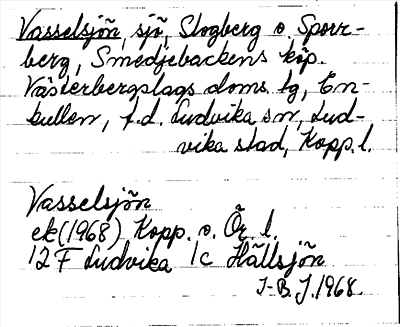 Vasselsjön, sjö, Slogberg o. Sporr-
berg, Smedjebackens köp.
Västerbergslags doms. tg, En-
kullen, f.d. Ludvika sn, Lud-
vika stad, Kopp. l.
Vasselsjön
ek (1968) Kopp. o. Ör. l.
12F Ludvika 1c Hällsjön
I-B. J. 1968.